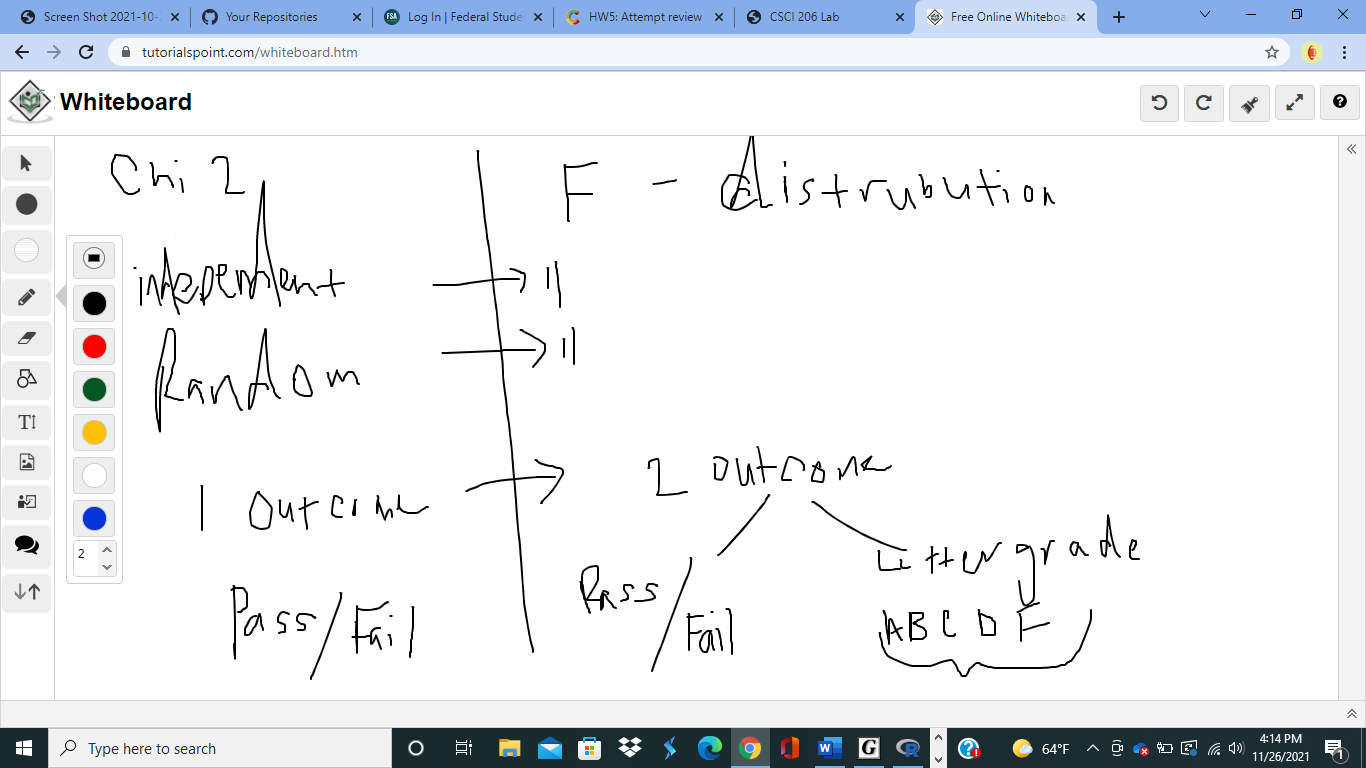 Screen Shot 2021-10-
Your Repositories
Log In | Federal Stude
HW5: Attempt review
CSCI 206 Lab
Free Online Whiteboa
tutorialspoint.com/whiteboard.htm
Whiteboard
Chi 2
F - distrubution
independent → "
Random → "
1 outcome → 2 outcome
Pass/Fail
Pass/Fail
Litter grade
A B C D F
2
Type here to search
64°F
4:14 PM
11/26/2021
1